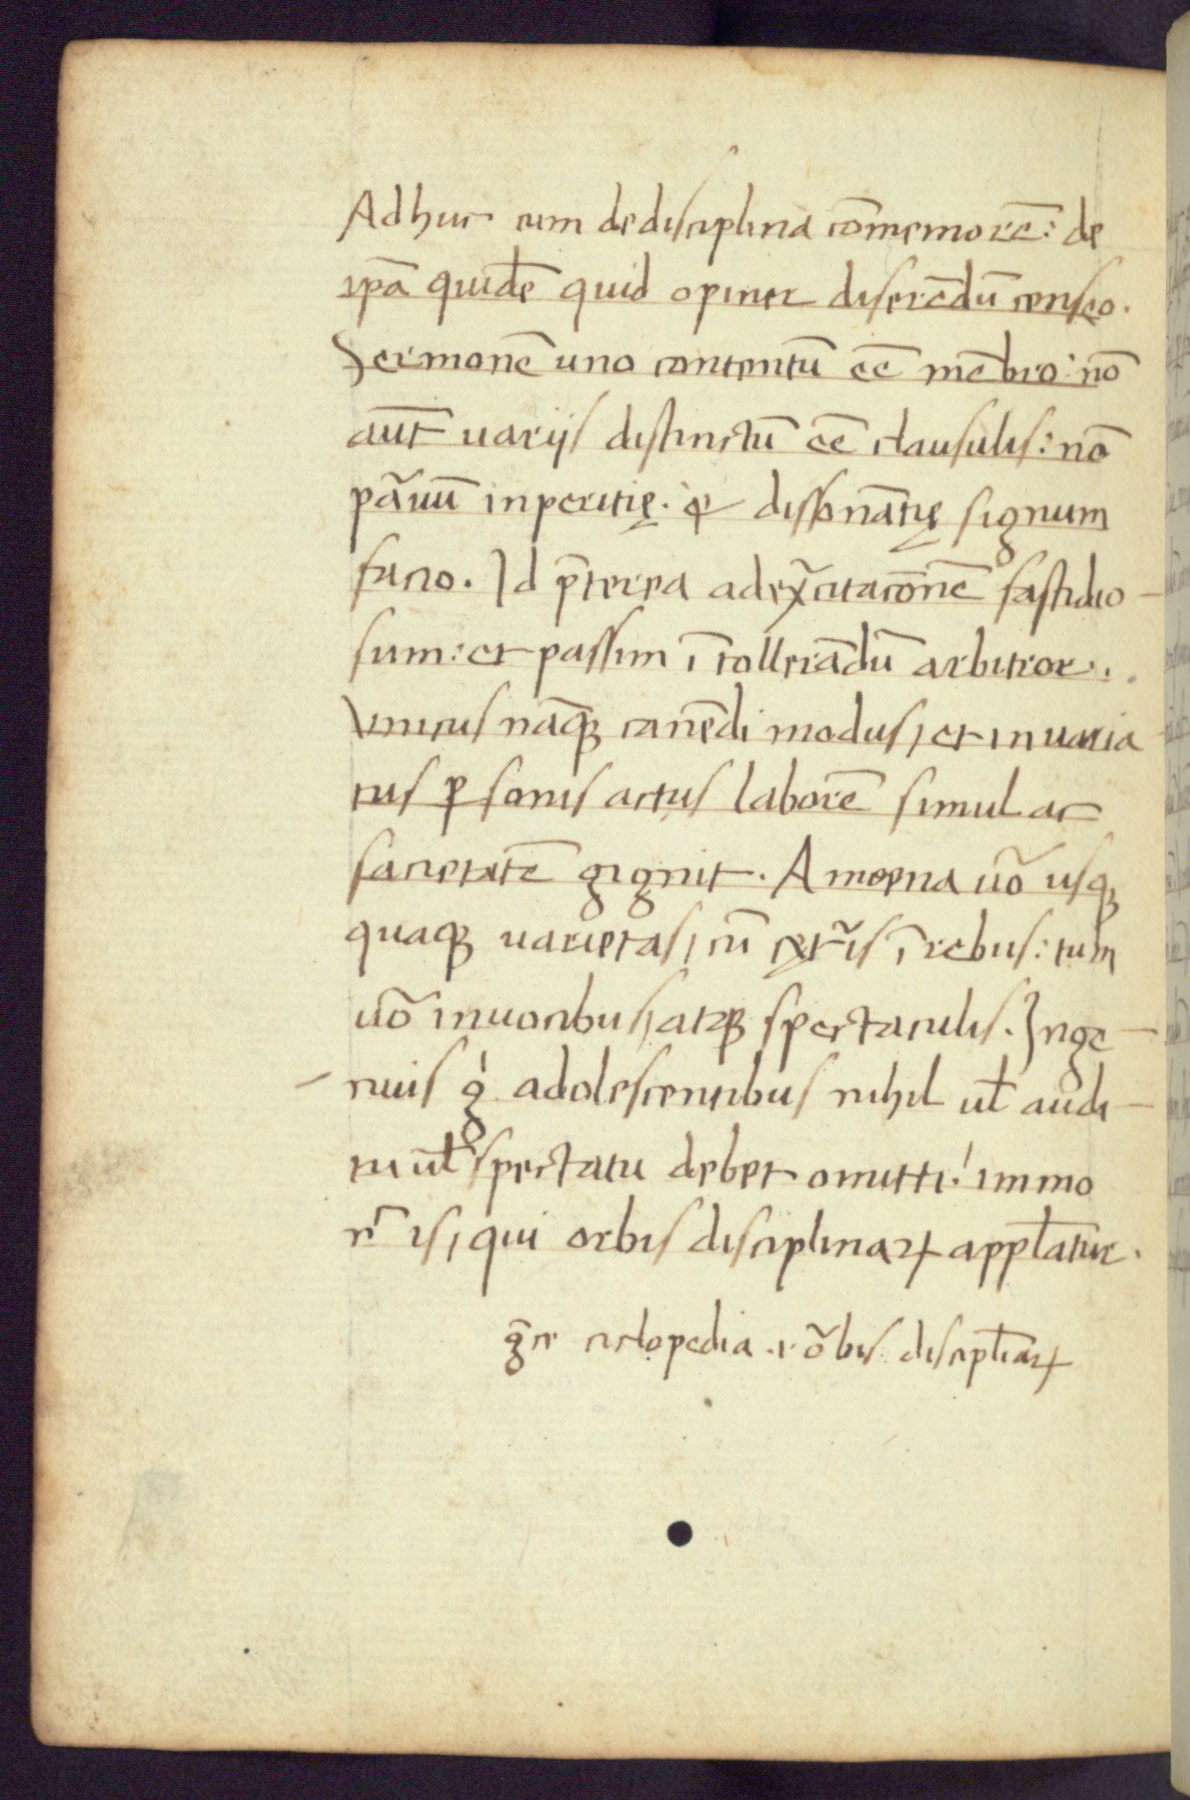 Adhuc cum dedisciplina cōmemorē: de
ipā quidē quid opiner diserēdū censeo.
Sermonē uno contentū eē mēbro: nō
aut̄ uarijs distinctū eē clausulis: nō
pãuū inperitię. dissonātię signum
facio. Id p̄terea adex̃citacōnē fastidio-
sum: et passim ī tollerādū arbitror.
Vnicus nāqꝫ canēdi modus, et inuaria
tus ꝑ sonis actus laborē simul ac
sacietatē gignit. Amoena uõ usqꝫ
quaqꝫ uarietas, cū cęt̃is ī rebus: tum
uõ inuocibus, atqꝫ spectaculis. Inge-
nuis gͥ adolescentibus nihil uł audi-
tu uł spectatu debet omitti! immo
n̄ is, qui orbis disciplinaꝝ appłatur.
ḡce ciclopedia .i. õbis discipłiaꝝ